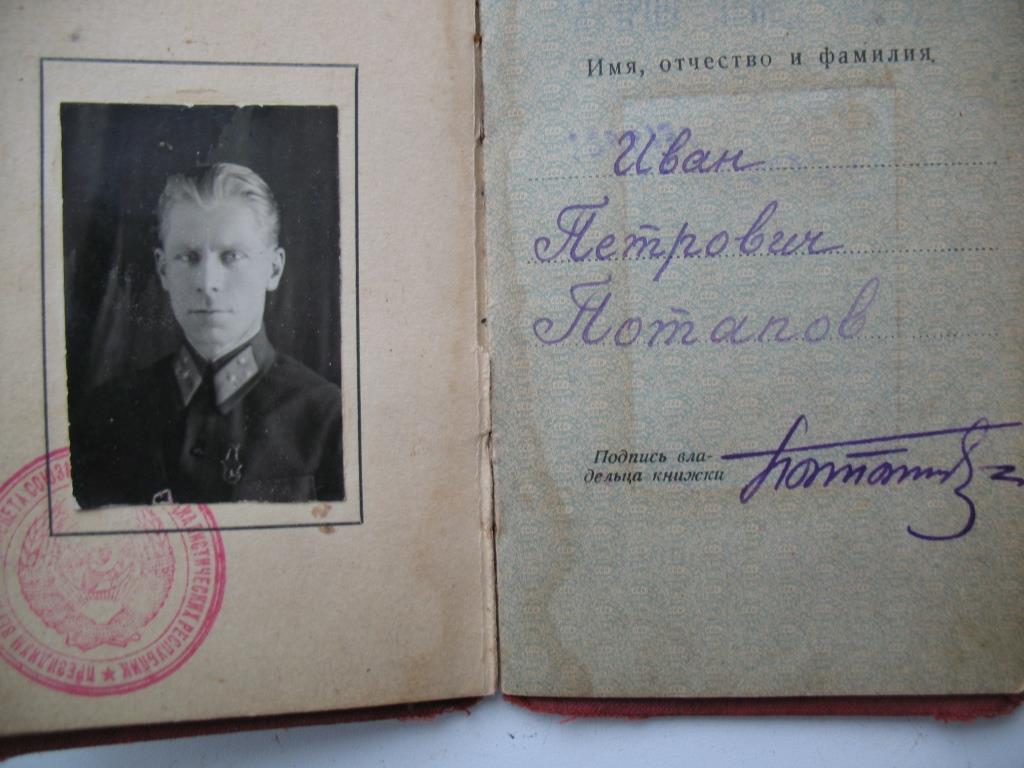 Имя, отчество и фамилия
Иван
Петрович
Потапов
Подпись вла-
дельца книжки
ПРЕЗИДИУМ ВЕ
ВЕТА СОЮЗА
ИСТИЧЕСКИХ РЕСПУБЛИК